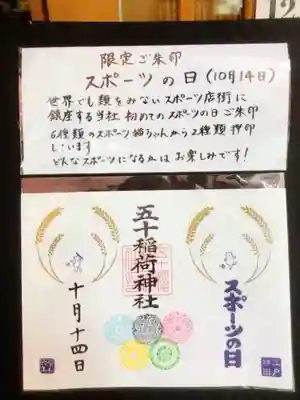 限定ご朱印
スポーツの日(10月14日)
世界でも類をみないスポーツ店街に
鎮座する当社 初めてのスポーツの日ご朱印
6種類のスポーツ猫ちゃんから2種類押印
しています
どんなスポーツになるかはお楽しみです!
五十稲荷神社
スポーツの日
十月十四日